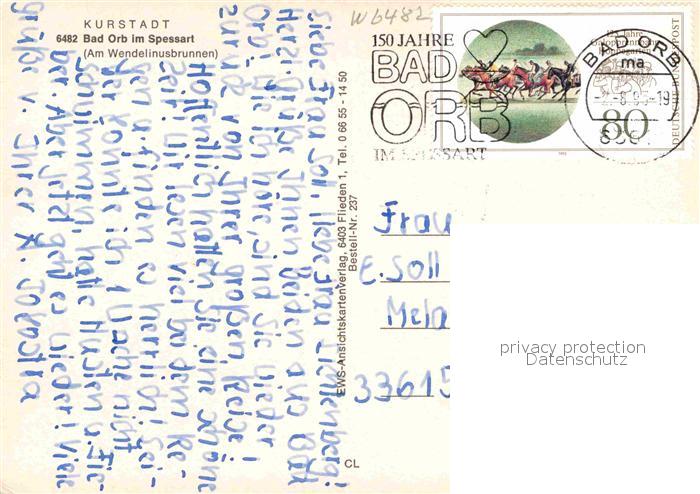 KURSTADT
6482 Bad Orb im Spessart
(Am Wendelinusbrunnen)
W6482
150 JAHRE
BAD
ORB
IM SPESSART
125 Jahre
Galopprennsport
DEUTSCHE BUNDESPOST
80
BAD ORB
ma
-19
Liebe Frau Soll, liebe Frau
Herzl. Grüße Ihnen Beiden aus Bad
Orb! Wie ich höre, sind Sie wieder
zurück von Ihrer großen Reise!
Hoffentlich hatten Sie eine schöne
Zeit! Wir lesen viel bei dem Re-
gen u. finden es herrlich! Lei-
der konnte ich 1 Woche nicht
schwimmen, hatte Husten u. Fie-
ber. Aber jetzt geht es wieder! Viele
Grüße v. Ihrer
EWS-Ansichtskartenverlag, 6403 Flieden 1, Tel. 0 66 55 - 14 50
Bestell-Nr. 237
CL
Frau
E. Soll
Mela
33615
privacy protection
Datenschutz